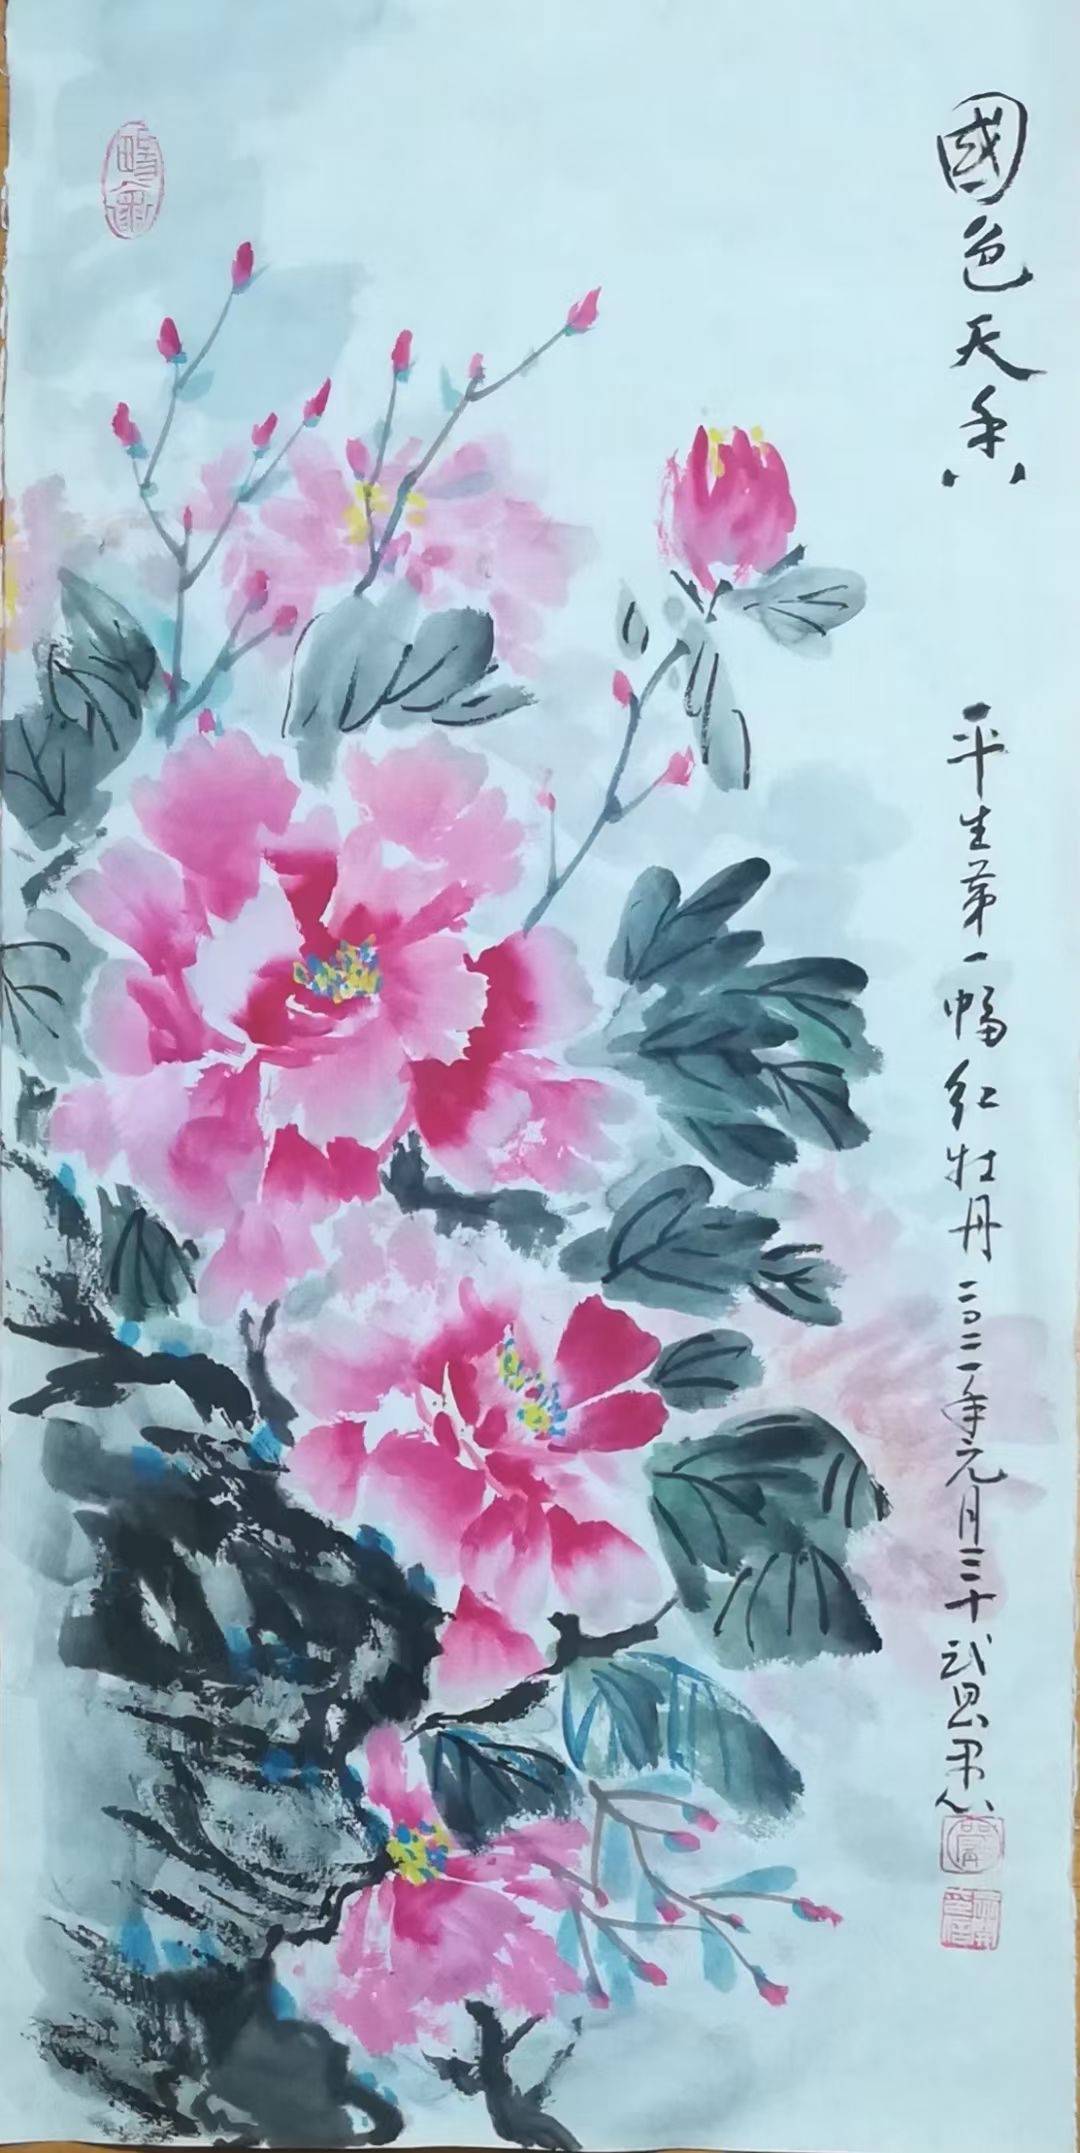 國色天香
平生第一幅红牡丹二〇二一年元月三十